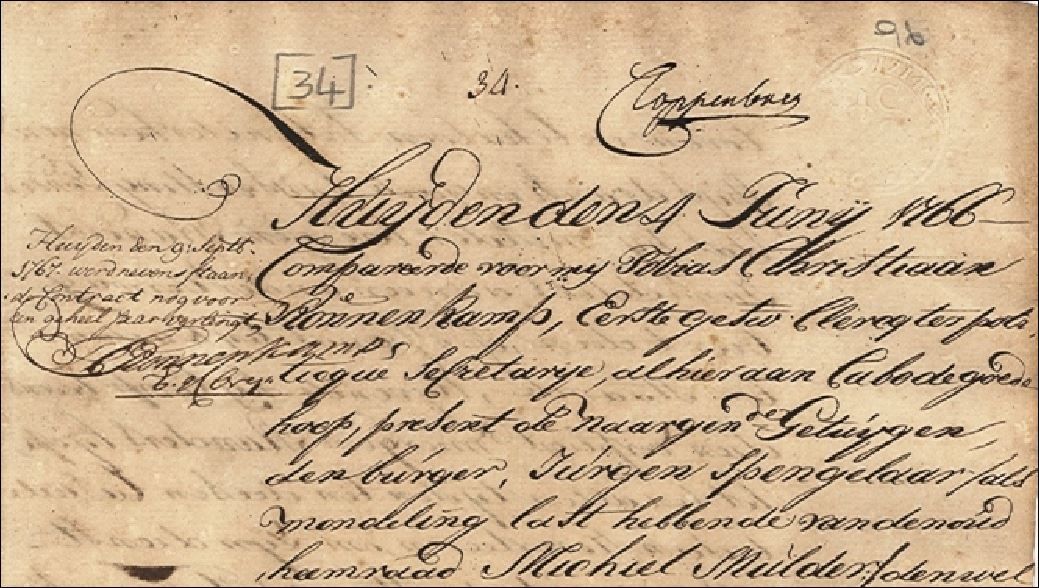 96
34
34.
Coppenbaer
Huijden den 4 Junij 1766
Compareerde voor mij Tobias Christiaan
Rönnenkamp, Eerste getw Clercq ter poli
ticque Secretarije, alhier aan Cabo de goede
hoop, present de naargende Getuijgen,
den burger, Jurgen Spengelaar / als
mondeling last hebbende van den oud
heemraad Michiel Mulder / den wel
Huijden den 9: Septb.
1767. werd nevenstaan
de Contract nog voor
een geheel Jaar verlengt
CRonnenkamp
E. g. Clercq